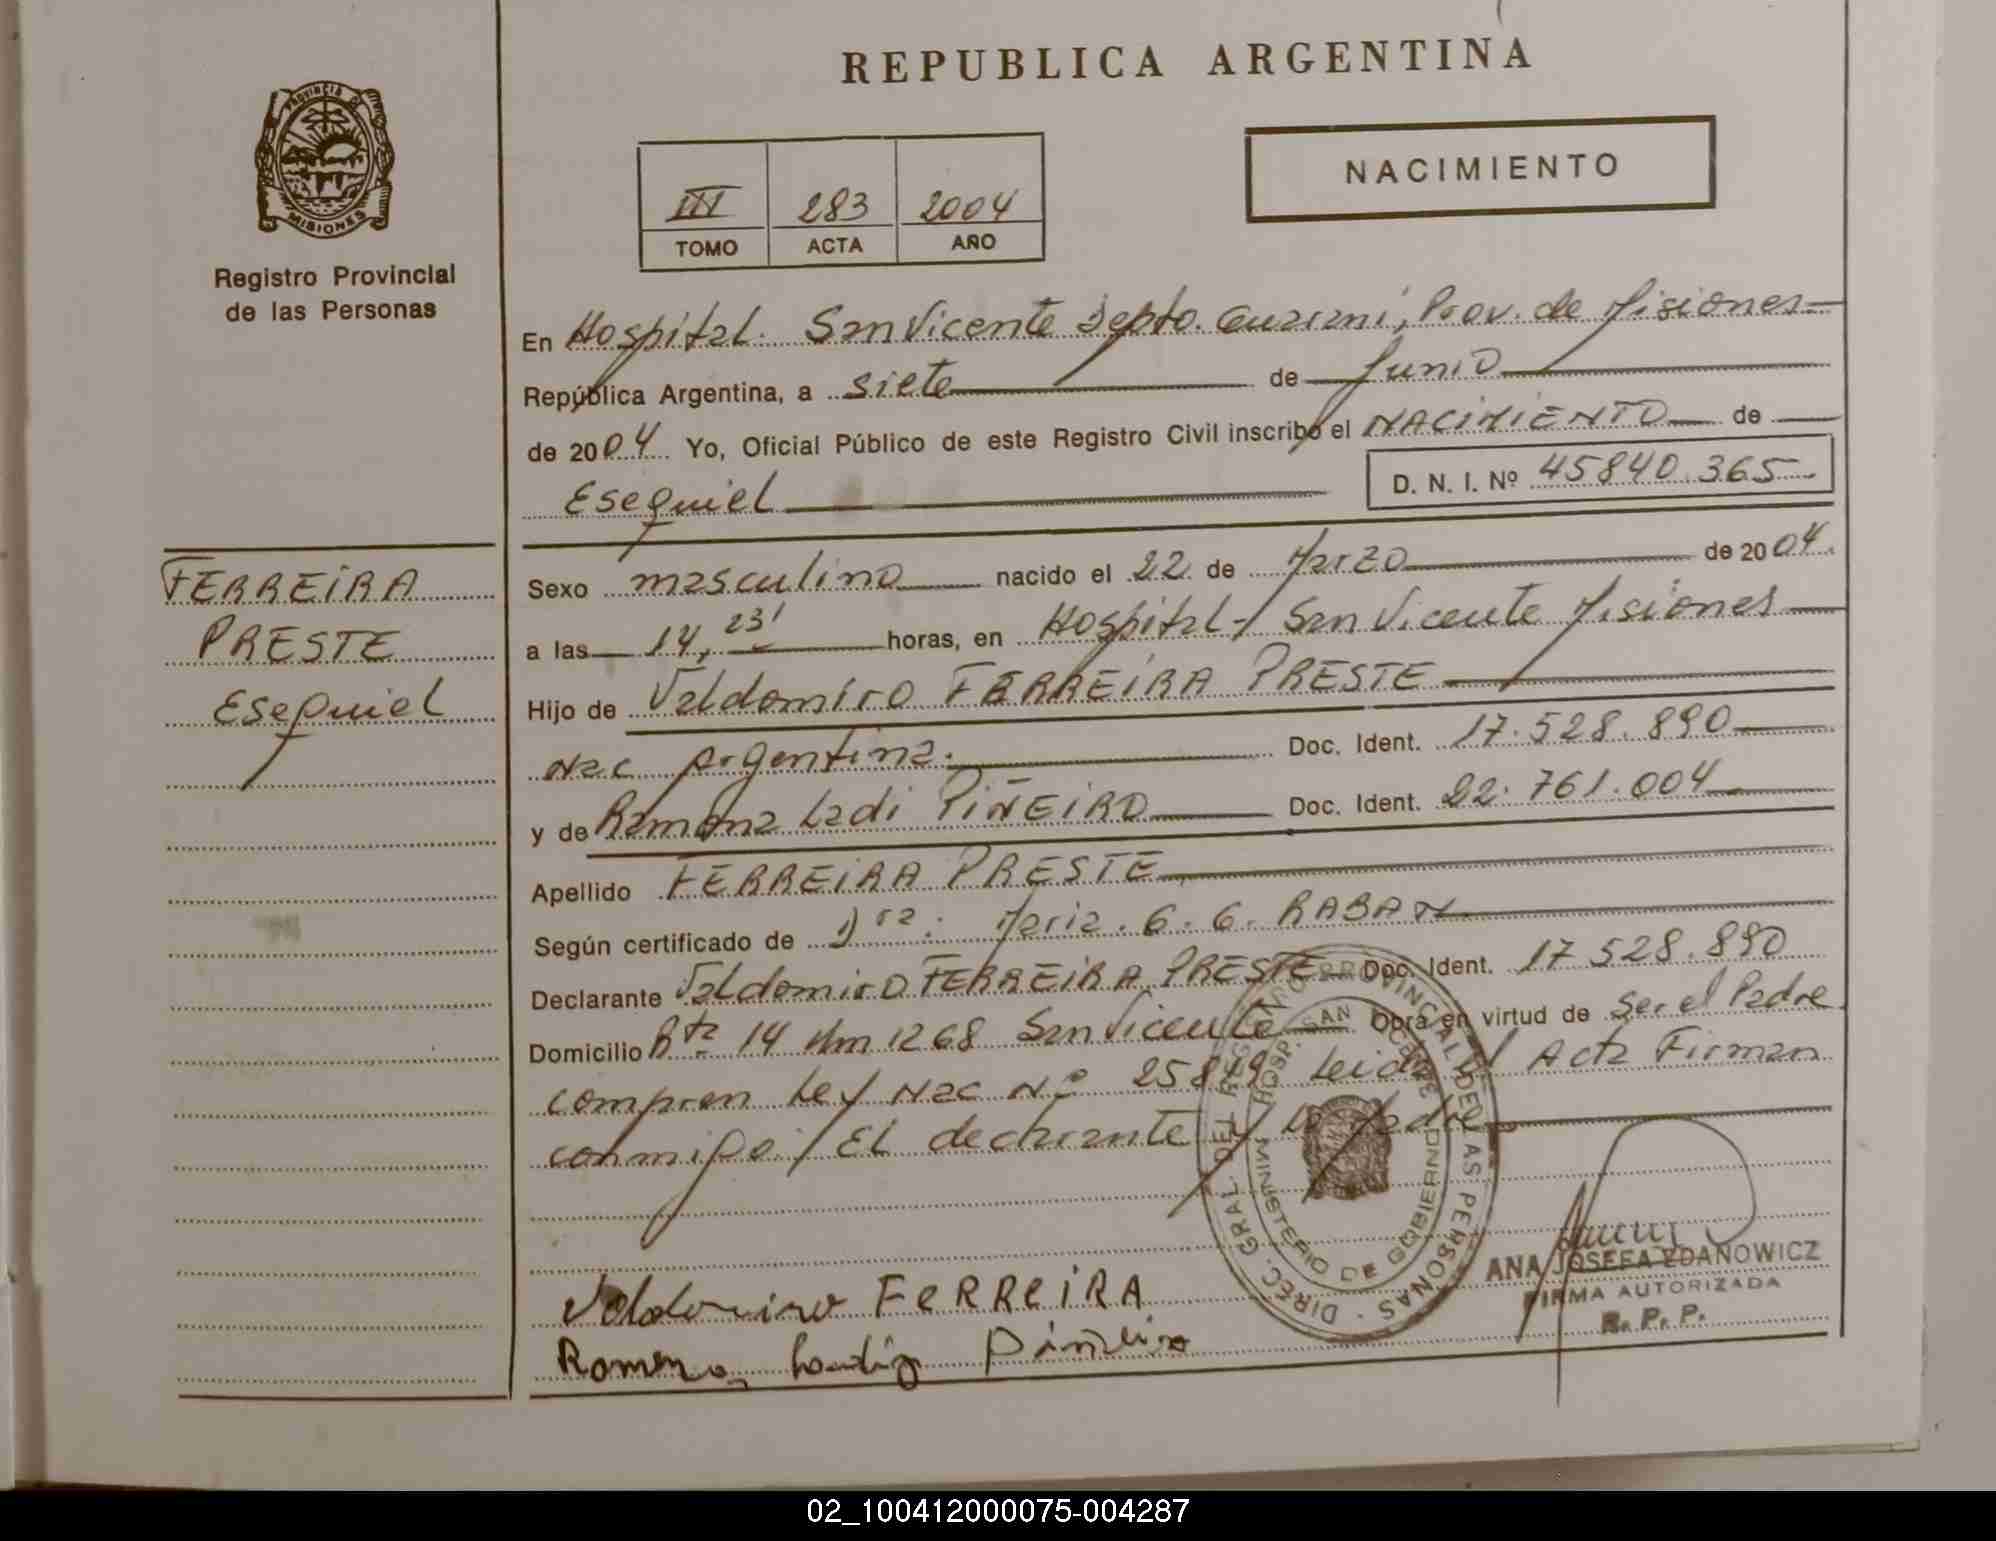 REPUBLICA ARGENTINA
PROVINCIA DE
MISIONES
Registro Provincial
de las Personas
III 283 2004
TOMO ACTA AÑO
NACIMIENTO
En Hospital. San Vicente Depto. Guarani, Prov. de Misiones
República Argentina, a siete de Junio
de 2004 Yo, Oficial Público de este Registro Civil inscribo el NACIMIENTO de
Esequiel D. N. I. Nº 45840.365
FERREIRA
PRESTE
Esequiel
Sexo masculino nacido el 22 de Marzo de 2004.
a las 14, 23' horas, en Hospital - San Vicente Misiones
Hijo de Valdomiro FERREIRA PRESTE
Nac Argentina. Doc. Ident. 17.528.890
y de Ramona Ladi PIÑEIRO Doc. Ident. 22.761.004
Apellido FERREIRA PRESTE
Según certificado de Dra. Maria. G. G. RABAN
Declarante Valdomiro FERREIRA PRESTE Doc. Ident. 17 528.890
Domicilio Rta 14 Km 1268 San Vicente Obra en virtud de Ser el Padre
compren Ley Nac Nº 25819 Leida el Acta Firman
conmigo El declarante y la Madre
DIREC. GRAL. DEL REGISTRO PROVINCIAL DE LAS PERSONAS
HOSP. SAN VICENTE
MINISTERIO DE GOBIERNO
Valdomiro FERREIRA
Ramona Piñeiro
ANA JOSEFA ZDANOWICZ
FIRMA AUTORIZADA
R. P. P.
02_100412000075-004287